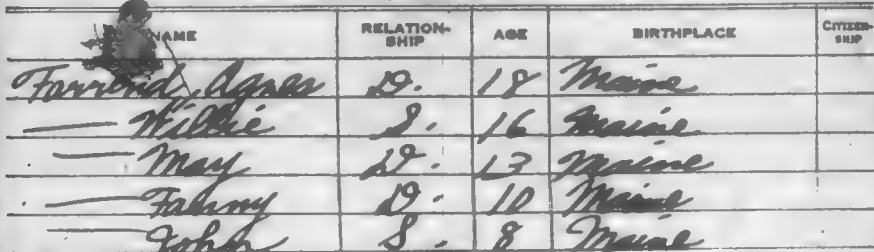 NAME RELATION-SHIP AGE BIRTHPLACE CITIZEN-SHIP
Farrend, Agnes D. 18 Maine
— Willie S. 16 Maine
— May D. 13 Maine
— Fanny D. 10 Maine
— John S. 8 Maine